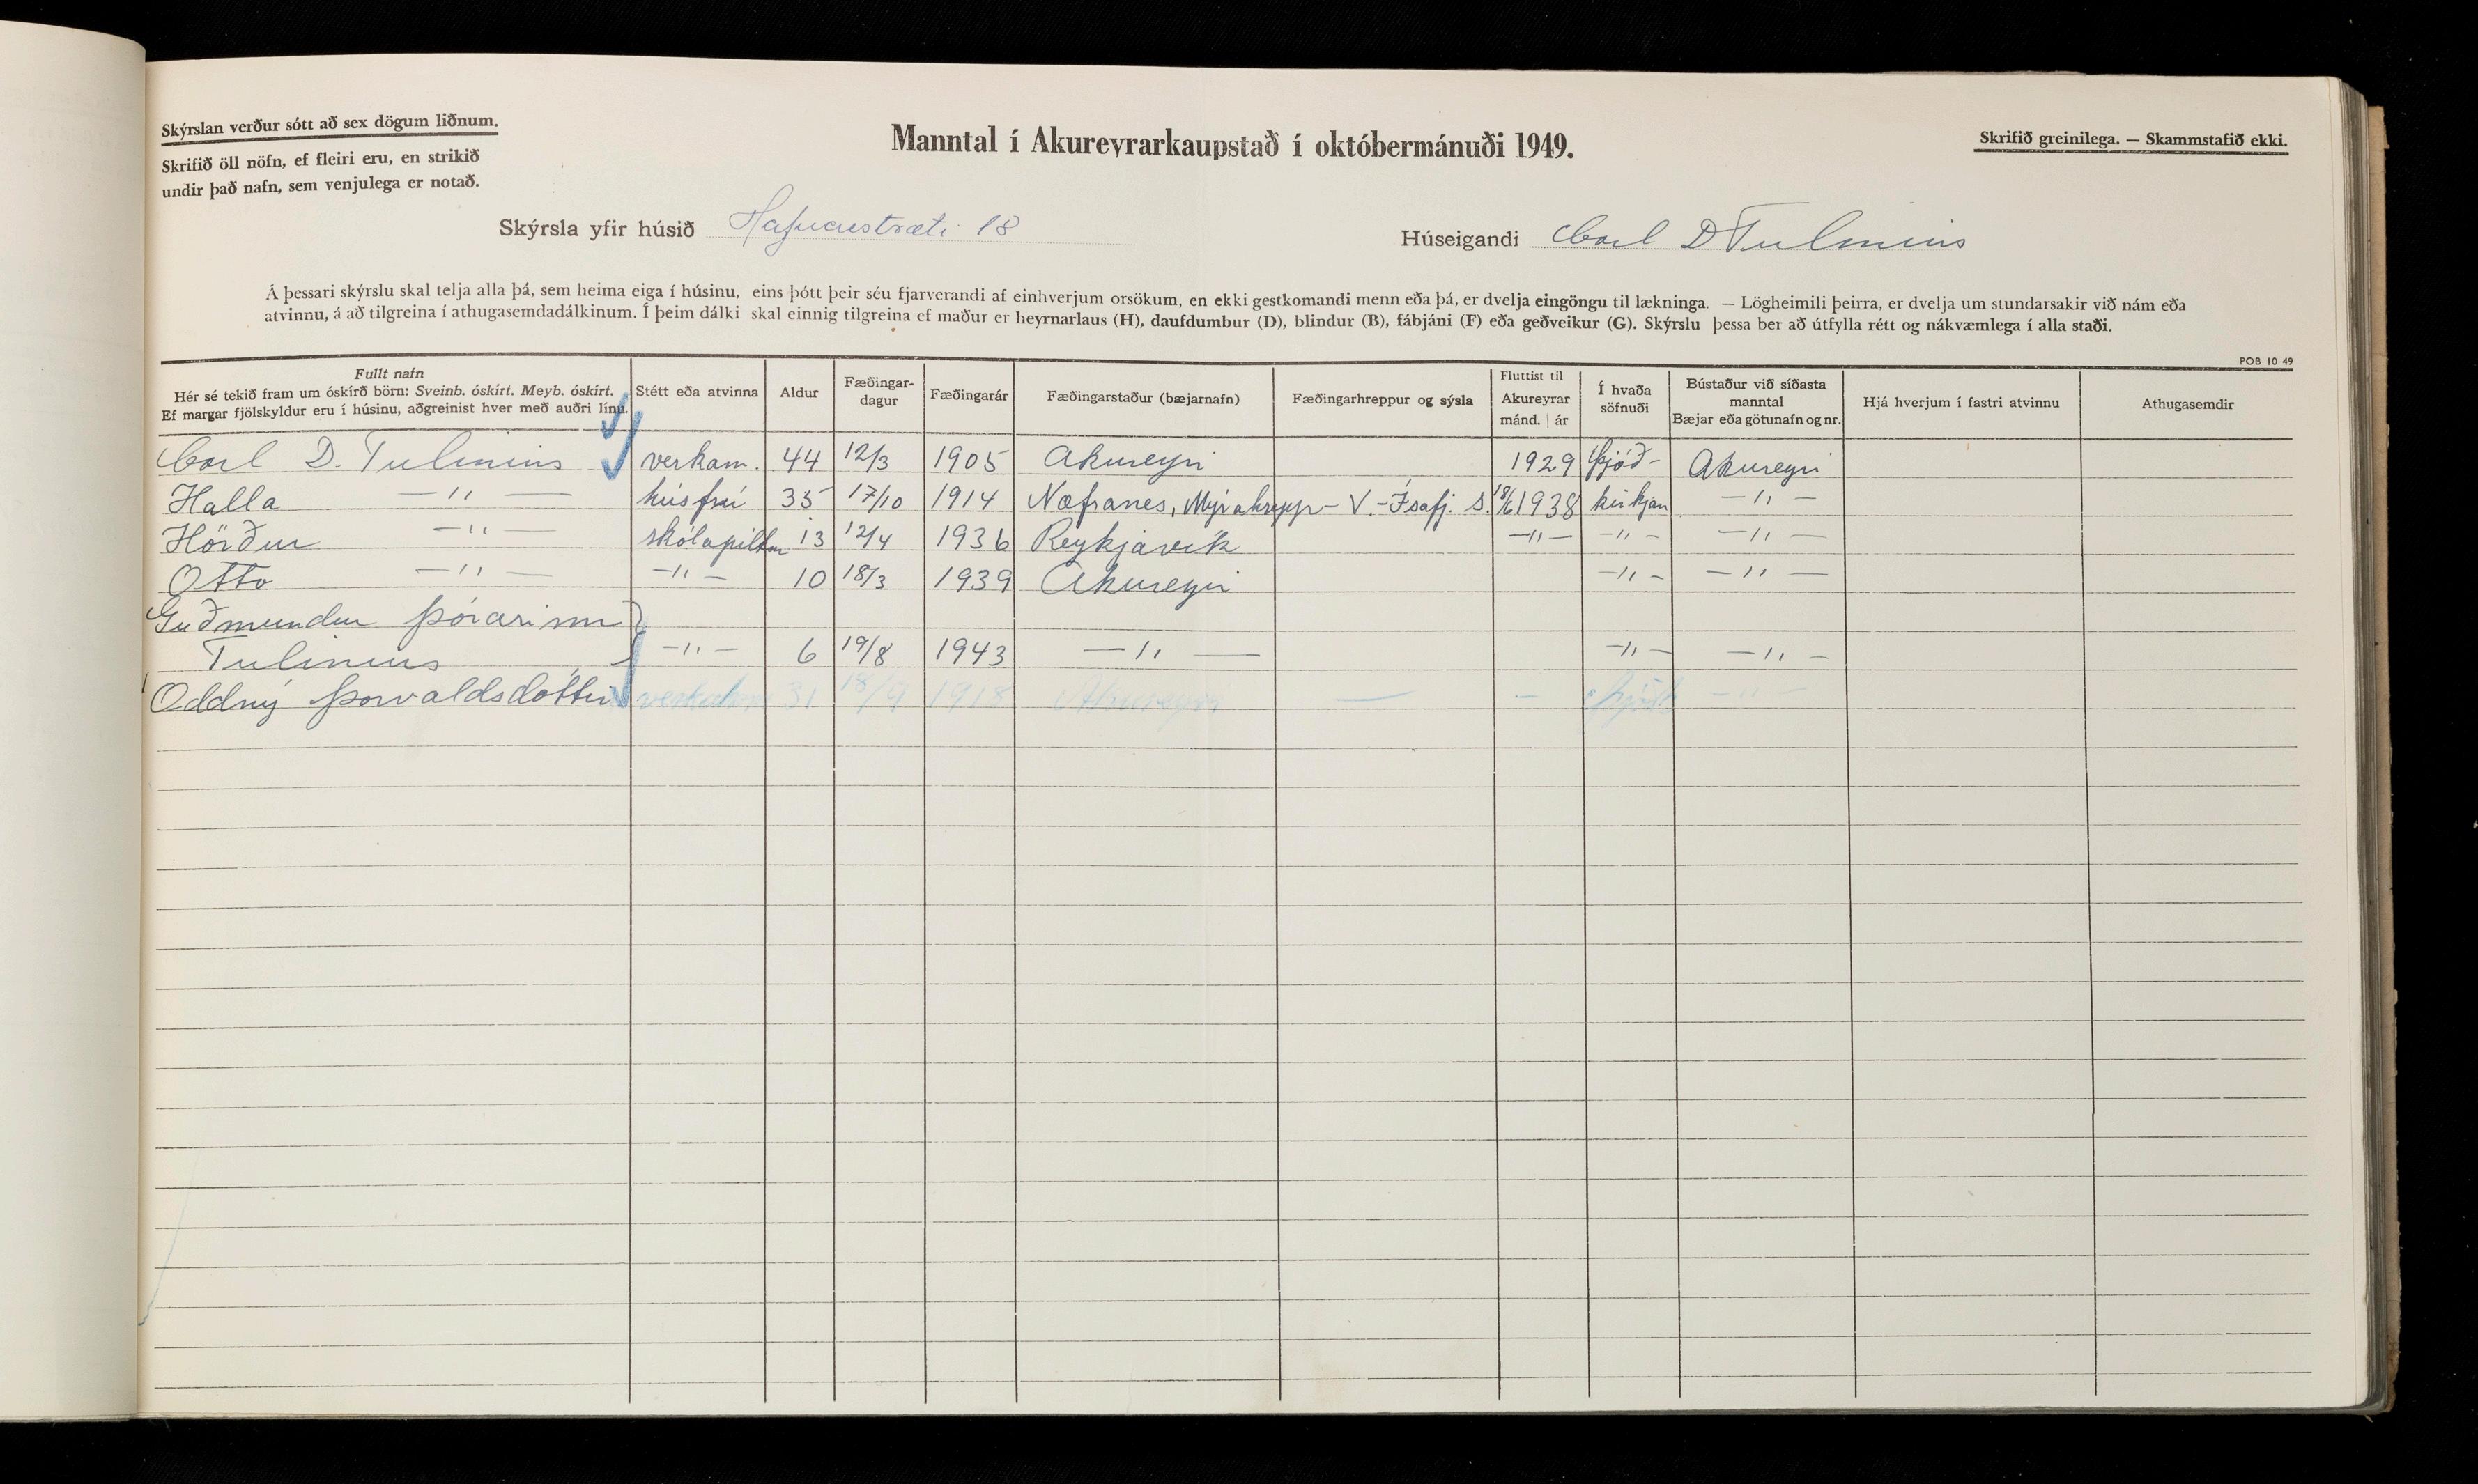 Skýrslan verður sótt að sex dögum liðnum.
Skrifið öll nöfn, ef fleiri eru, en strikið
undir það nafn, sem venjulega er notað.
Manntal í Akureyrarkaupstað í októbermánuði 1949.
Skrifið greinilega. — Skammstafið ekki.
Skýrsla yfir húsið Hafnarstræti 18
Húseigandi Carl D Tulinius
Á þessari skýrslu skal telja alla þá, sem heima eiga í húsinu, eins þótt þeir séu fjarverandi af einhverjum orsökum, en ekki gestkomandi menn eða þá, er dvelja eingöngu til lækninga. — Lögheimili þeirra, er dvelja um stundarsakir við nám eða
atvinnu, á að tilgreina í athugasemdadálkinum. Í þeim dálki skal einnig tilgreina ef maður er heyrnarlaus (H), daufdumbur (D), blindur (B), fábjáni (F) eða geðveikur (G). Skýrslu þessa ber að útfylla rétt og nákvæmlega í alla staði.
POB 10 49
Fullt nafn
Hér sé tekið fram um óskírð börn: Sveinb. óskírt. Meyb. óskírt.
Ef margar fjölskyldur eru í húsinu, aðgreinist hver með auðri línu.
Stétt eða atvinna
Aldur
Fæðingar-
dagur
Fæðingarár
Fæðingarstaður (bæjarnafn)
Fæðingarhreppur og sýsla
Fluttist til
Akureyrar
mánd. | ár
Í hvaða
söfnuði
Bústaður við síðasta
manntal
Bæjar eða götunafn og nr.
Hjá hverjum í fastri atvinnu
Athugasemdir
Carl D. Tulinius verkam. 44 12/3 1905 Akureyri 1929 Þjóð- Akureyri
Halla —〃— húsfrú 35 17/10 1914 Næfranes, Mýrahrepp - V.-Ísafj. s. 18/6 1938 kirkjan —〃—
Hörður —〃— skólapiltur 13 12/4 1936 Reykjavík —〃— —〃— —〃—
Otto —〃— —〃— 10 18/3 1939 Akureyri —〃— —〃—
Guðmundur Þórarinn
Tulinius —〃— 6 19/8 1943 —〃— —〃— —〃—
Oddný Þorvaldsdóttir 31 18/9 1918 Akureyri — — —〃—